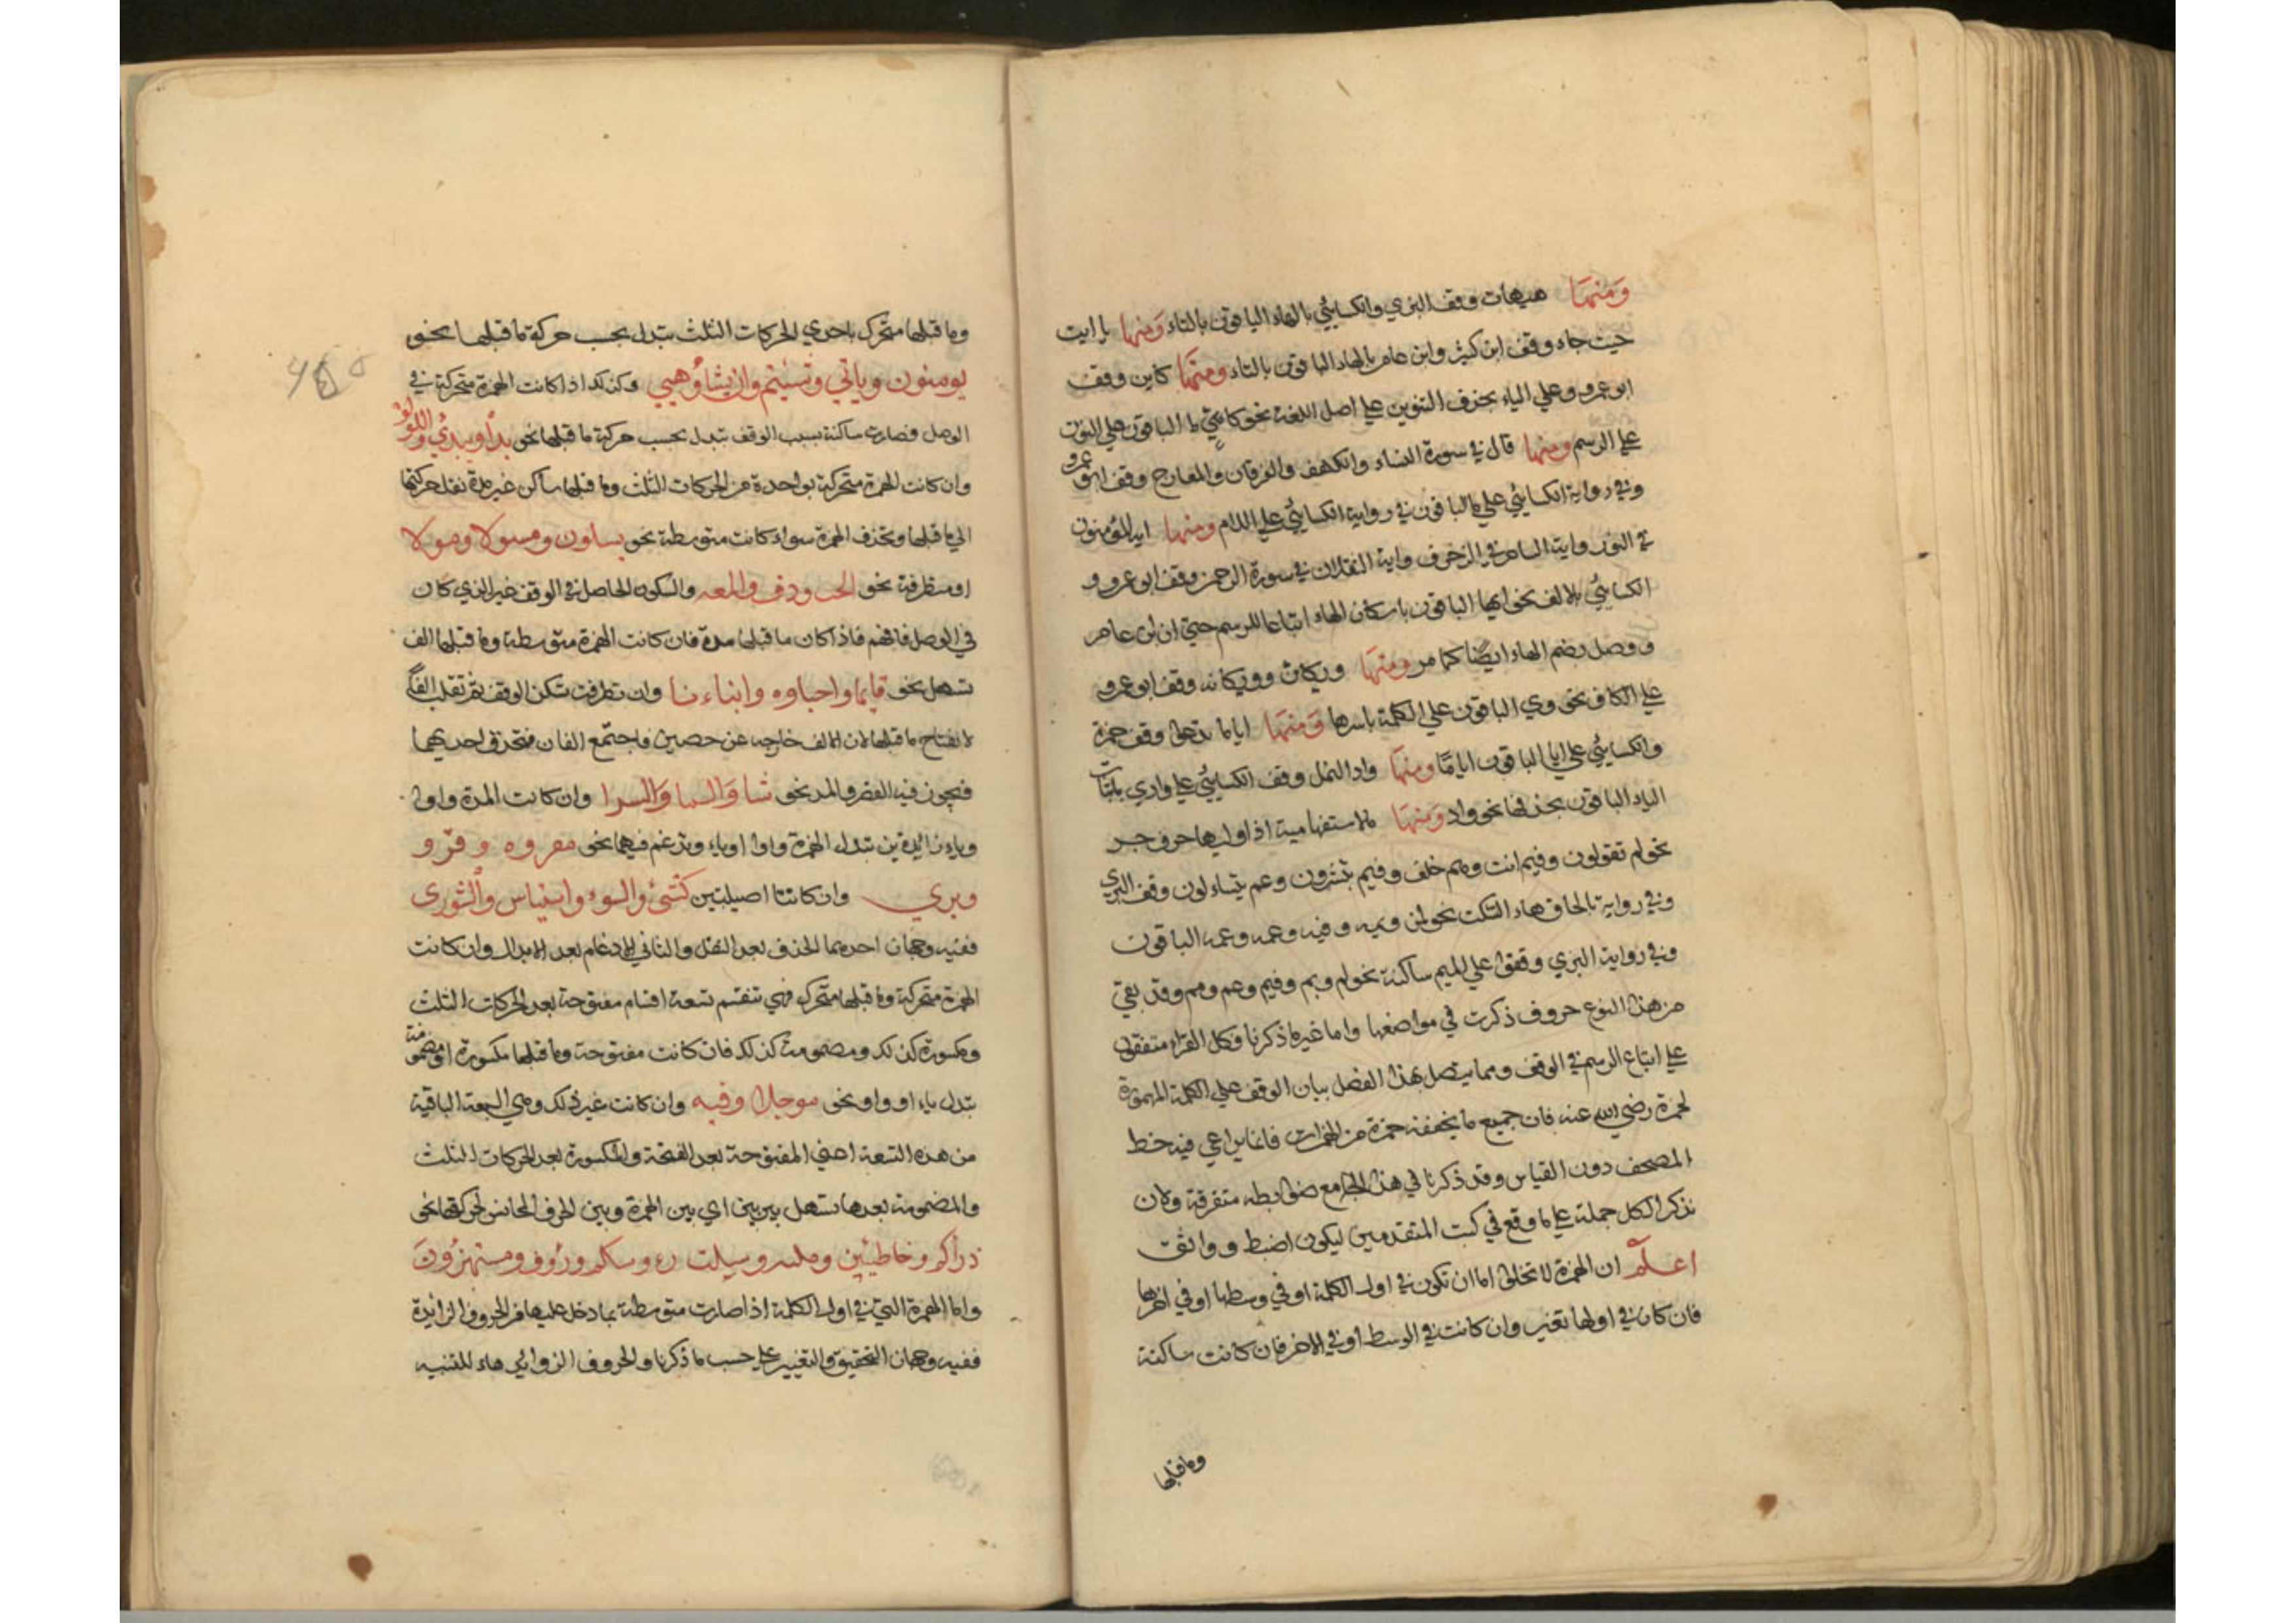 ومنها هيهات وقف البزي والكسائي بالهاء الباقون بالتاء ومنها يا ابت
حيث جاء وقف ابن كثير وابن عامر بالهاء الباقون بالتاء ومنها كاين وقف
ابو عمرو وعلي الياء بحذف التنوين علي اصل اللغة نحو كاي الباقون علي النون
علي الرسم ومنها قال في سورة النساء والكهف والفرقان والمعارج وقف ابو عمرو
وفي رواية الكسائي علي ما الباقون في رواية الكسائي علي اللام ومنها ايه المؤمنون
في النور واية الساحر في الزخرف واية الثقلان في سورة الرحمن وقف ابو عمرو و
الكسائي بالالف نحو ايها الباقون باسكان الهاء اتباعا للرسم حتي ان ابن عامر
ووصل بضم الهاء ايضا كما مر ومنها ويكان وويكانه وقف ابو عمرو
علي الكاف نحو وي الباقون علي الكلمة باسرها ومنها اياما تدعوا وقف حمزة
والكسائي علي ايا الباقون اياما ومنها واد النمل وقف الكسائي علي وادي باثبات
الياء الباقون بحذفها نحو واد ومنها ما لاستفهامية اذا وليها حرف جر
نحو لم تقولون وفيم انت ومم خلق وفيم تبشرون وعم يتساءلون وقف البزي
وفي رواية بالحاق هاء السكت نحو لمه وبمه وفيه وعمه ومه الباقون
وفي رواية البزي وقفوا علي الميم ساكنة نحو لم وبم وفيم وعم ومم وقد بقي
من هذا النوع حروف ذكرت في مواضعها واما غير ما ذكرنا فكل القراء متفقون
علي اتباع الرسم في الوقف ومما يتصل بهذا الفصل بيان الوقف علي الكلمة المهموزة
لحمزة رضي الله عنه فان جميع ما يخففه حمزة من الهمزات فانما يراعي فيه خط
المصحف دون القياس وقد ذكرنا في هذا الجامع ضوابطه متفرقة ولان
نذكر الكل جملة علي ما وقع في كتب المتقدمين ليكون اضبط وواثق
اعلم ان الهمزة لا تخلوا اما ان تكون في اول الكلمة او في وسطها او في اخرها
فان كان في اولها تغير وان كانت في الوسط او في الاخر فان كانت ساكنة
وما قبلها
وما قبلها متحرك باحدي الحركات الثلث تبدل بحسب حركة ما قبلها نحو
يومنون وياتي وتسئتم وان يشأ وهيي وكذلك اذا كانت الهمزة متحركة في
الوصل فصارت ساكنة بسبب الوقف تبدل بحسب حركة ما قبلها نحو بدأ ويبدئ واللؤلؤ
وان كانت الهمزة متحركة بواحدة من الحركات الثلث وما قبلها ساكن غير مدة نقل حركتها
الي ما قبلها وتحذف الهمزة سواء كانت متوسطة نحو يسلون ومسولا وموىلا
او متطرفة نحو الخب ودف والمعه والسكون الحاصل في الوقف غير الذي كان
في الوصل فافهم فاذا كان ما قبلها مدة فان كانت الهمزة متوسطة وما قبلها الف
تسهل نحو قايما واحباوه وابناءنا وان تطرفت تسكن الوقف ثم تقلب الفا
لانفتاح ما قبلها لان الالف خارجه عن حصين فاجتمع الفان فتحذف احديهما
فيجوز فيه القصر والمد نحو شا والسما والسرا وان كانت المدة واوا
وياء زايدتين تبدل الهمزة واوا او ياء وتدغم فيهما نحو مقروه وقرو
وبري وان كانتا اصيلتين كشئ والسوء واستياس والشورى
ففيه وجهان احدهما الحذف بعد النقل والثاني الادغام بعد الابدال وان كانت
الهمزة متحركة وما قبلها متحرك فهي تنقسم تسعة اقسام مفتوحة بعد الحركات الثلث
ومكسورة كذلك ومضمومة كذلك فان كانت مفتوحة وما قبلها مكسورة او مضمومة
تبدل ياء او واو نحو موجلا وفيه وان كانت غير ذلك وهي السبعة الباقية
من هذه التسعة اعني المفتوحة بعد الفتحة والمكسورة بعد الحركات الثلث
والمضمومة بعدها تسهل بين بين اي بين الهمزة وبين الحرف المجانس لحركتها نحو
ذرأكم وخاطئين وملئه وسيلت روسكم ورؤف ومستهزؤن
واما الهمزة التي في اول الكلمة اذا صارت متوسطة بما دخل عليها من الحروف الزائدة
ففيه وجهان التحقيق والتغيير علي حسب ما ذكرنا والحروف الزوائد هاء للتنبيه